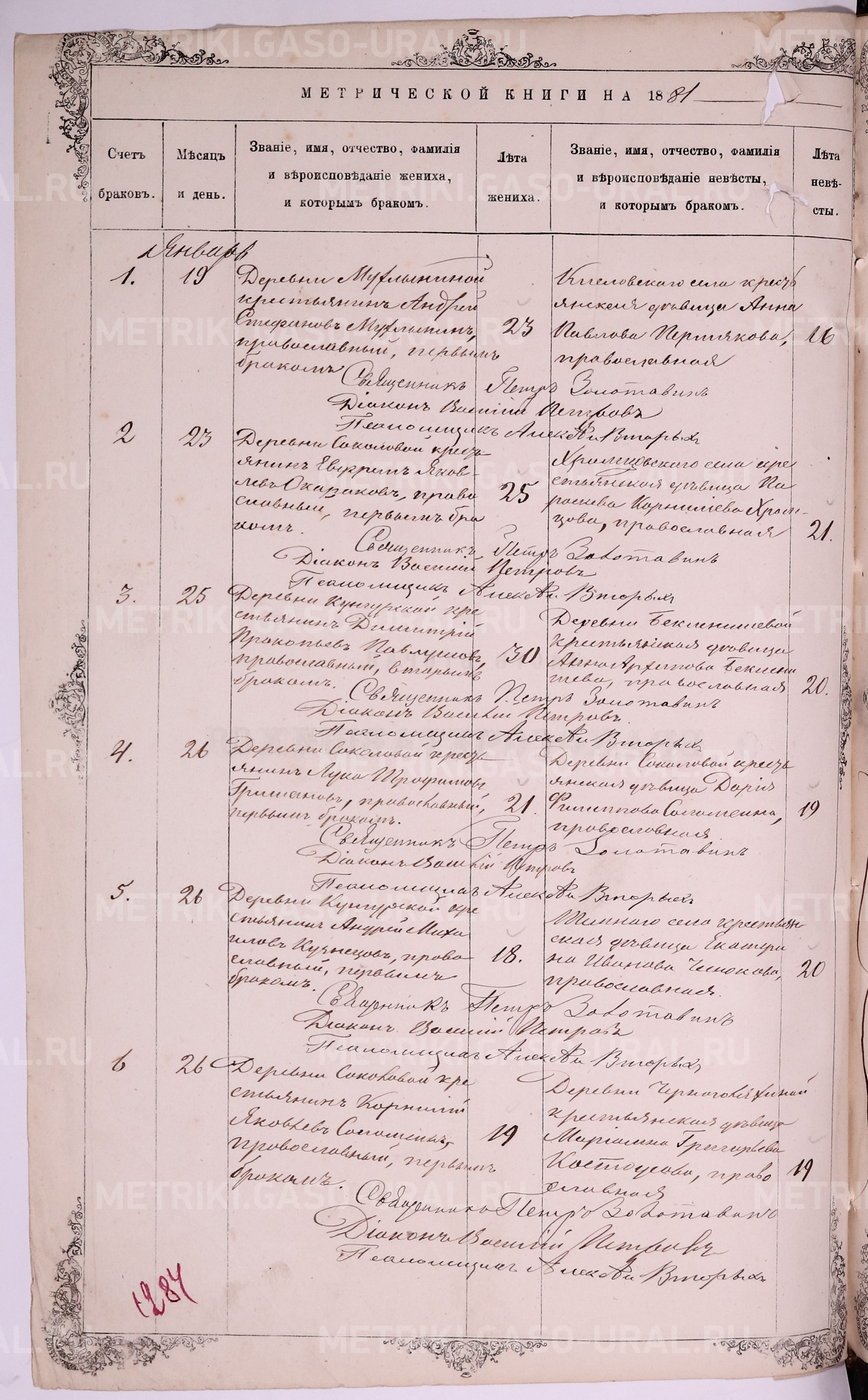 МЕТРИЧЕСКОЙ КНИГИ НА 1881
Счетъ браковъ.
Мѣсяцъ и день.
Званіе, имя, отчество, фамилія
и вѣроисповѣданіе жениха,
и которымъ бракомъ.
Лѣта жениха.
Званіе, имя, отчество, фамилія
и вѣроисповѣданіе невѣсты,
и которымъ бракомъ.
Лѣта невѣ-
сты.
Январь
1. 19
Деревни
крестьянинъ Андрей
Стефановъ
православный, первымъ
бракомъ
23
села кресть
янская дѣвица Анна
Павлова Пермякова,
православная
16
Священникъ Петръ Золотавинъ
Діаконъ Василій Петровъ
Псаломщикъ Алексѣй Вторыхъ
2 23
Деревни Соколовой кресть
янинъ Яков-
левъ право
славный, первымъ бра
комъ.
25
Храмцовского села кре
стьянская дѣвица Па
раскева Корнилева Храм-
цова, православная
21.
Священникъ Петръ Золотавинъ
Діаконъ Василій Петровъ
Псаломщикъ Алексѣй Вторыхъ
3. 25
Деревни Кунгурской кре
стьянинъ Димитрій
Прокопьевъ
православный, вторымъ
бракомъ.
30
Деревни Бекленищевой
крестьянская дѣвица
Анна Архипова Беклени
щева, православная
20.
Священникъ Петръ Золотавинъ
Діаконъ Василій Петровъ.
Псаломщикъ Алексѣй Вторыхъ
4. 26
Деревни Соколовой кресть
янинъ Лука Трофимовъ
православный,
первымъ бракомъ.
21.
Деревни Соколовой кресть
янская дѣвица Дарія
Филиппова Соломеина,
православная
19
Священникъ Петръ Золотавинъ
Діаконъ Василій Петровъ
Псаломщикъ Алексѣй Вторыхъ
5. 26
Деревни Кунгурской кре
стьянинъ Андрей Миха
иловъ Кузнецовъ, право
славный, первымъ
бракомъ.
18.
села крестьян
ская дѣвица Екатери
на Иванова
православная.
20
Священникъ Петръ Золотавинъ
Діаконъ Василій Петровъ
Псаломщикъ Алексѣй Вторыхъ
6 26
Деревни Соколовой кре
стьянинъ Корнилій
Яковлевъ Соломеинъ,
православный, первымъ
бракомъ.
19
Деревни
крестьянская дѣвица
Маріамна Григорьева
Костоусова, право
славная
19
Священникъ Петръ Золотавинъ
Діаконъ Василій Петровъ
Псаломщикъ Алексѣй Вторыхъ
1284
METRIKI.GASO-URAL.RU